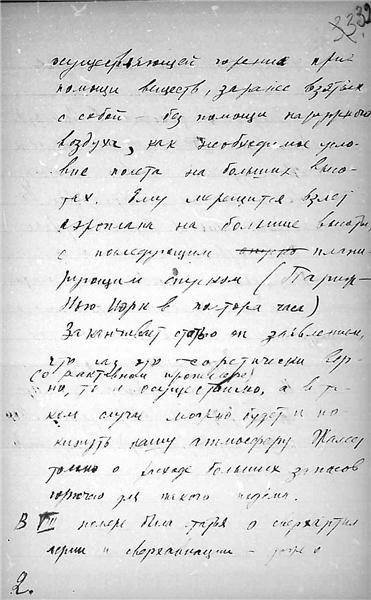 332
осуществляющей горение при
помощи веществ, заранее взятых
с собой – без помощи наружного
воздуха, как необходимое усло-
вие полета на больших высо-
тах. Ему мерещится взлет
аэроплана на большие высоты,
с последующим плани-
рующим спуском (Париж-
Нью-Йорк в полтора часа)
Заканчивает статью он заявлением,
что раз это теоретически вер-
о реактивном
но, то и осуществимо, а в та-
ком случае можно будет и по-
кинуть нашу атмосферу. Жалеет
только о расходе больших запасов
горючего для такого подъема.
В VIII номере была статья о сверхартил
лерии и сверхавиации –
2.